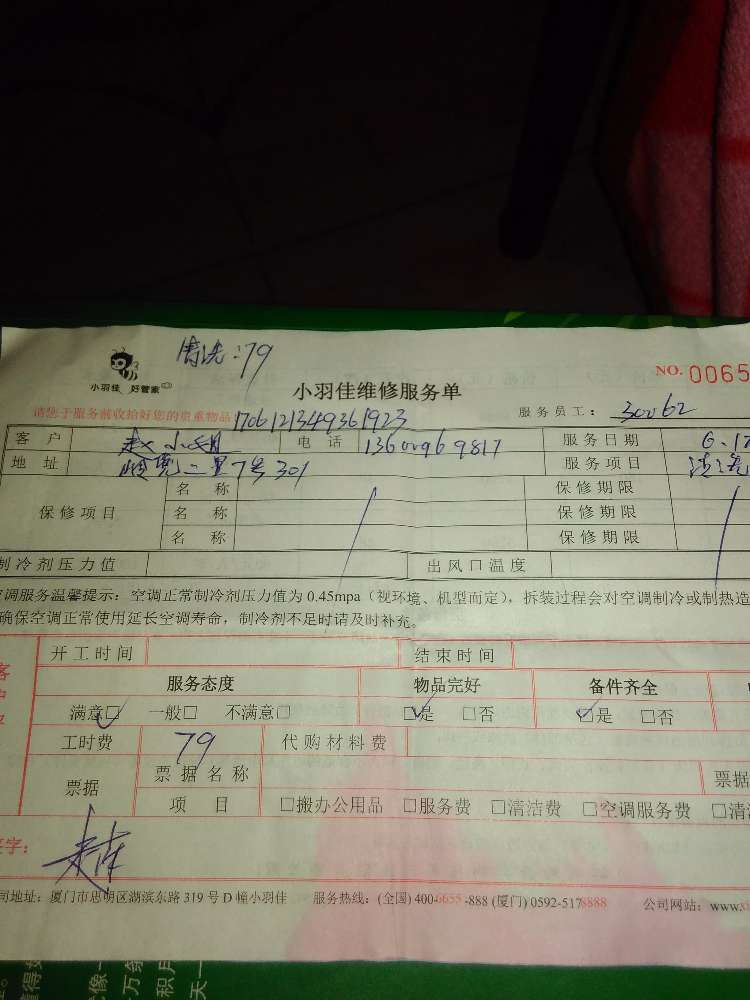 清洗:79
小羽佳 好管家
小羽佳维修服务单
NO. 0065
请您于服务前收拾好您的贵重物品
1706121349361923
服务员工: 30062
客 户 赵小姐 电 话 13600969817 服务日期 6.17
地 址 二里7号301 服务项目 清洗
保修项目 名 称 保修期限
名 称 保修期限
名 称 保修期限
制冷剂压力值 出风口温度
调服务温馨提示:空调正常制冷剂压力值为 0.45mpa(视环境、机型而定),拆装过程会对空调制冷或制热造
确保空调正常使用延长空调寿命,制冷剂不足时请及时补充。
开工时间 结束时间
服务态度 物品完好 备件齐全
满意☑ 一般□ 不满意□ ☑是 □否 ☑是 □否
工时费 79 代购材料费
票据 票据名称 票据
项 目 □搬办公用品 □服务费 □清洁费 □空调服务费 □清
签字:
司地址:厦门市思明区湖滨东路 319 号 D 幢小羽佳 服务热线:(全国) 400-6655-888 (厦门) 0592-5178888 公司网站:www.x